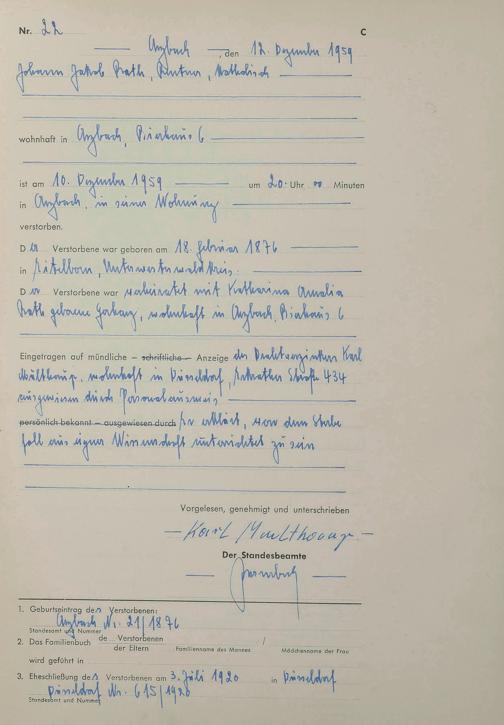 Nr. 22 C
Arzbach, den 12. Dezember 1959
Johann Jakob Rath, Rentner, katholisch
wohnhaft in Arzbach, Bierhaus 6
ist am 10. Dezember 1959 um 20 Uhr 00 Minuten
in Arzbach, in seiner Wohnung
verstorben.
Der Verstorbene war geboren am 18. Februar 1876
in Unterwesterwaldkreis.
Der Verstorbene war verheiratet mit Katharina Amalia
Rath geborene wohnhaft in Arzbach, Bierhaus 6
Eingetragen auf mündliche – schriftliche – Anzeige des Karl
wohnhaft in Düsseldorf, Straße 434
ausgewiesen durch Personalausweis
persönlich bekannt – ausgewiesen durch Er erklärt, von dem Sterbe
fall aus eigner Wissenschaft unterrichtet zu sein
Vorgelesen, genehmigt und unterschrieben
Karl
Der Standesbeamte
1. Geburtseintrag des Verstorbenen:
Arzbach Nr. 21/1876
Standesamt und Nummer
2. Das Familienbuch de Verstorbenen / der Eltern
Familienname des Mannes Mädchenname der Frau
wird geführt in
3. Eheschließung des Verstorbenen am 3. Juli 1920 in Düsseldorf
Düsseldorf Nr. 615/1920
Standesamt und Nummer